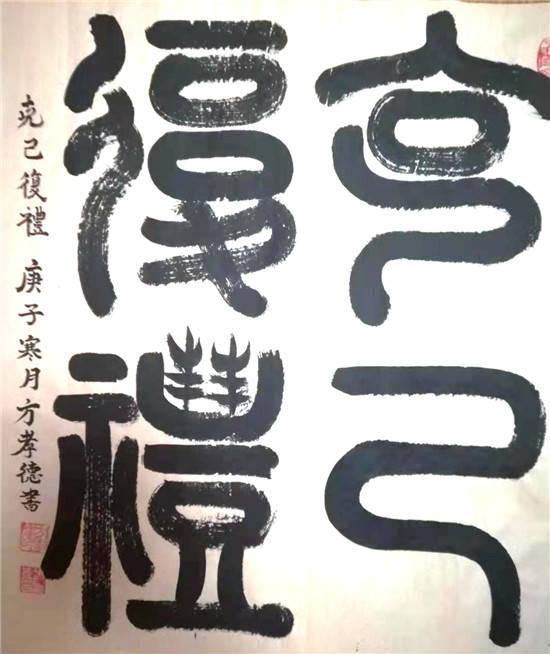 克己
復禮
克己復禮 庚子寒月方孝德書